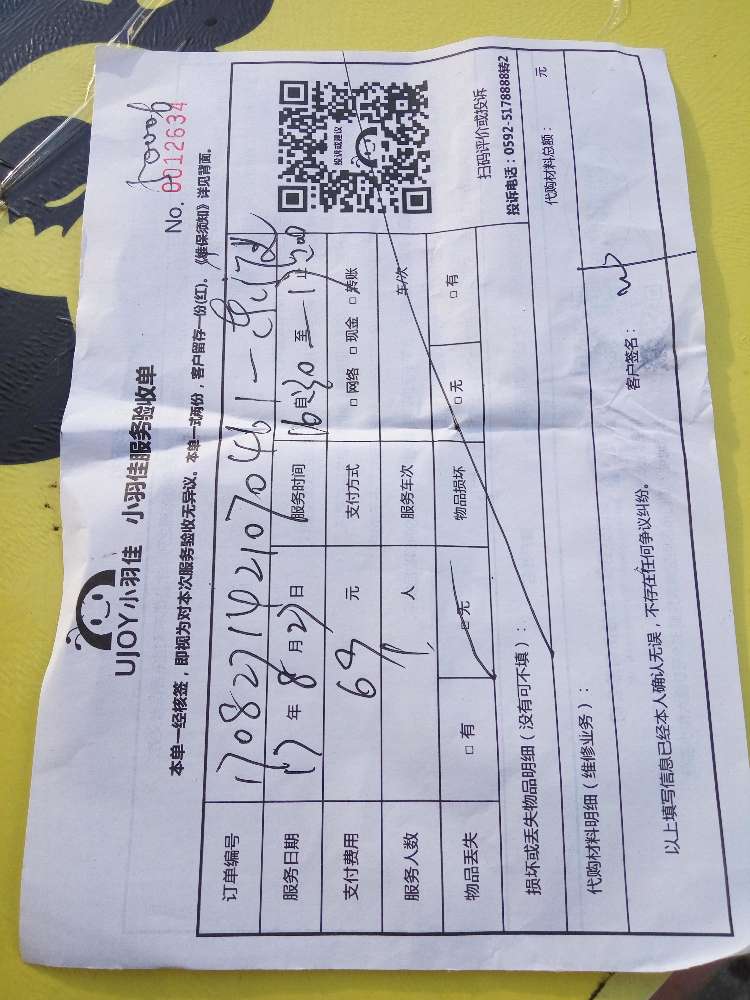 UJOY小羽佳 小羽佳服务验收单
No. 0012634
本单一经核签，即视为对本次服务验收无异议。本单一式两份，客户留存一份(红)。《维保须知》详见背面。
订单编号
服务日期 17 年 8 月 27 日 服务时间 16:30 至
支付费用 69 元 支付方式 □ 网络 □ 现金 □ 转账
服务人数 1 人 服务车次 车/次
物品丢失 □ 有 □ 无 物品损坏 □ 无 □ 有
投诉或建议
扫码评价或投诉
投诉电话：0592-5178888转2
损坏或丢失物品明细（没有可不填）：
代购材料明细（维修业务）： 代购材料总额： 元
以上填写信息已经本人确认无误，不存在任何争议纠纷。 客户签名：